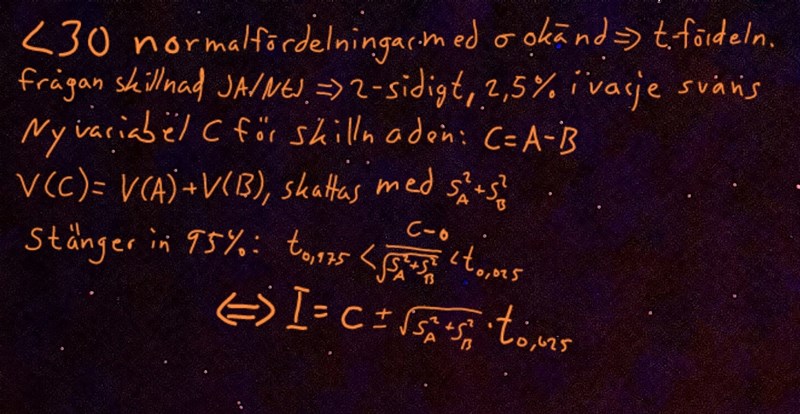 <30 normalfördelningar med σ okänd ⇒ t-fördeln.
Frågan skillnad JA/NEJ ⇒ 2-sidigt, 2,5% i varje svans
Ny variabel C för skillnaden: C=A-B
V(C)= V(A)+V(B), skattas med S_A^2+S_B^2
Stänger in 95%: t_0,975 < (C-0)/√(S_A^2+S_B^2) < t_0,025
⇔ I = C ± √(S_A^2+S_B^2) · t_0,025